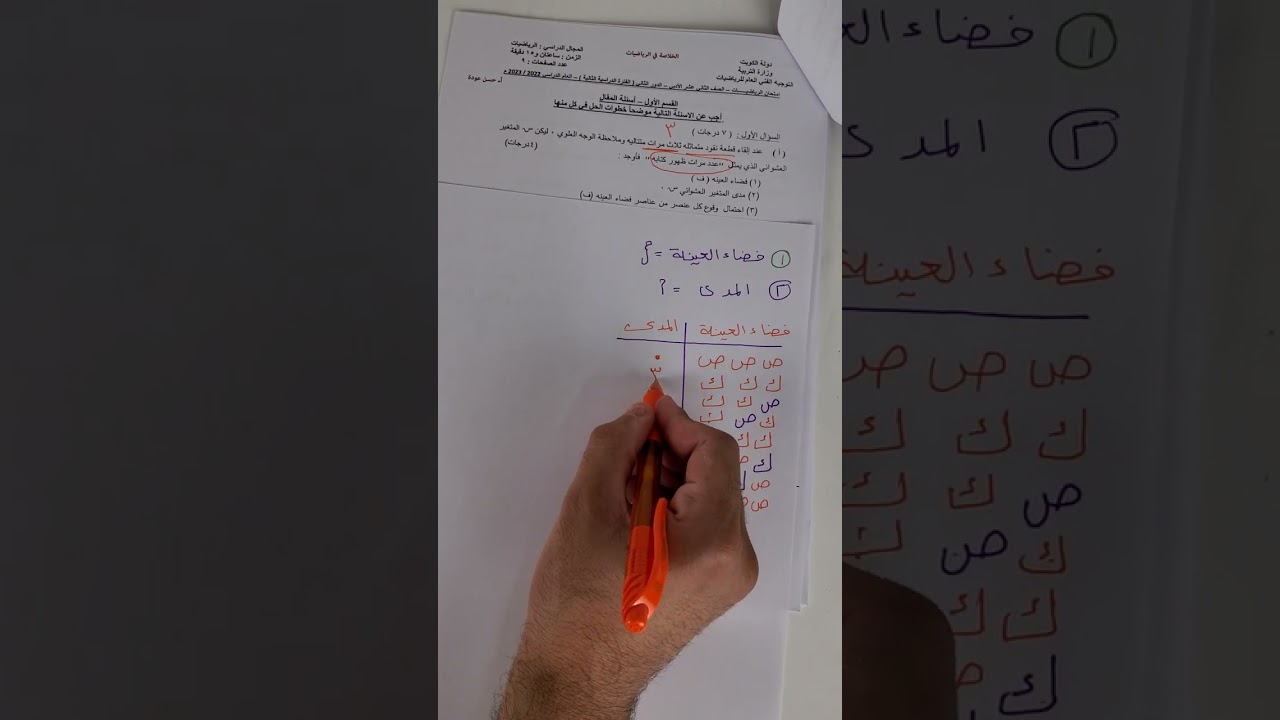 دولة الكويت
وزارة التربية
التوجيه الفني العام للرياضيات
الخلاصة في الرياضيات
المجال الدراسي : الرياضيات
الزمن : ساعتان و ١٥ دقيقة
عدد الصفحات : ٩
امتحان الرياضيـــــات – الصف الثاني عشر الأدبي – الدور الثاني ( الفترة الدراسية الثانية ) – العام الدراسي 2022 / 2023 م
أ. حسن عودة
القسم الأول – أسئلة المقال
أجب عن الاسئلة التالية موضحاً خطوات الحل في كل منها
السؤال الأول : ( ٧ درجات )
٣
( أ ) عند إلقاء قطعة نقود متماثله ثلاث مرات متتاليه وملاحظة الوجه العلوي ، ليكن س المتغير
العشوائي الذي يمثل " عدد مرات ظهور كتابه " فأوجد : (٤ درجات)
(١) فضاء العينه ( ف )
(٢) مدى المتغير العشوائي س .
(٣) احتمال وقوع كل عنصر من عناصر فضاء العينه (ف)
١ فضاء العينة = {
٢ المدى =
فضاء العينة المدى
ص ص ص ٠
ك ك ك ٣
ص ك ك
ك ص ك
ك ك
ك
ص
ص
١ فضاء العينة
٢ المدى
فضاء العينة
ص ص ص
ك ك ك
ص ك ك
ك ص ك
ك ك
ك ص